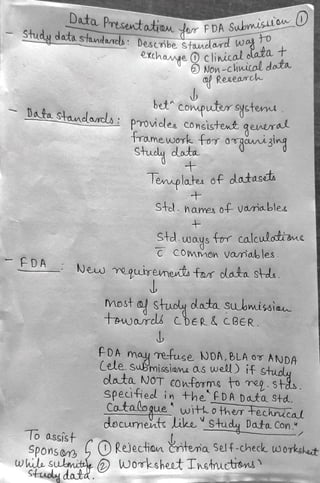 Data Presentation for FDA Submission ①
- Study data standards: Describe standard way to
exchange ① Clinical data +
② Non-clinical data
of Research
↓
betⁿ computer systems.
- Data standards: provides consistent general
framework for organizing
study data
+
Templates of datasets
+
Std. names of variables
+
Std. ways for calculations
c̄ common variables
- FDA: New requirements for data stds.
↓
most of study data submission
towards CDER & CBER.
↓
FDA may refuse NDA, BLA or ANDA
(ele submissions as well) if study
data NOT conforms to req. stds.
specified in the "FDA Data Std.
Catalogue" with other technical
documents like "Study Data Con."
↓
To assist
sponsors
while submitting
study data.
{ ① Rejection Criteria Self-check Worksheet
② Worksheet Instructions"